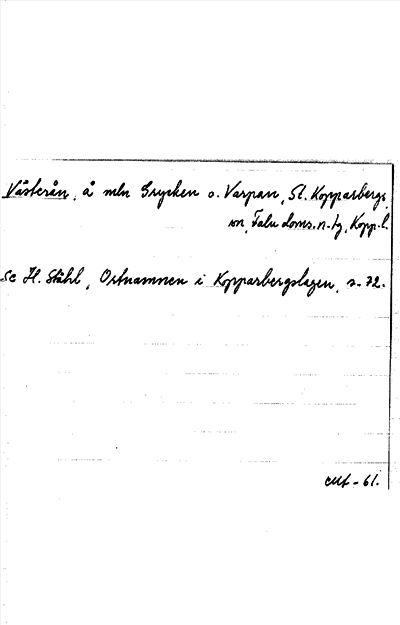 Västerån, å mln Grycken o. Varpan, St. Kopparbergs
sn, Falu doms.n.tg, Kopp.l.
Se H. Ståhl, Ortnamnen i Kopparbergslagen, s. 72.
-61.